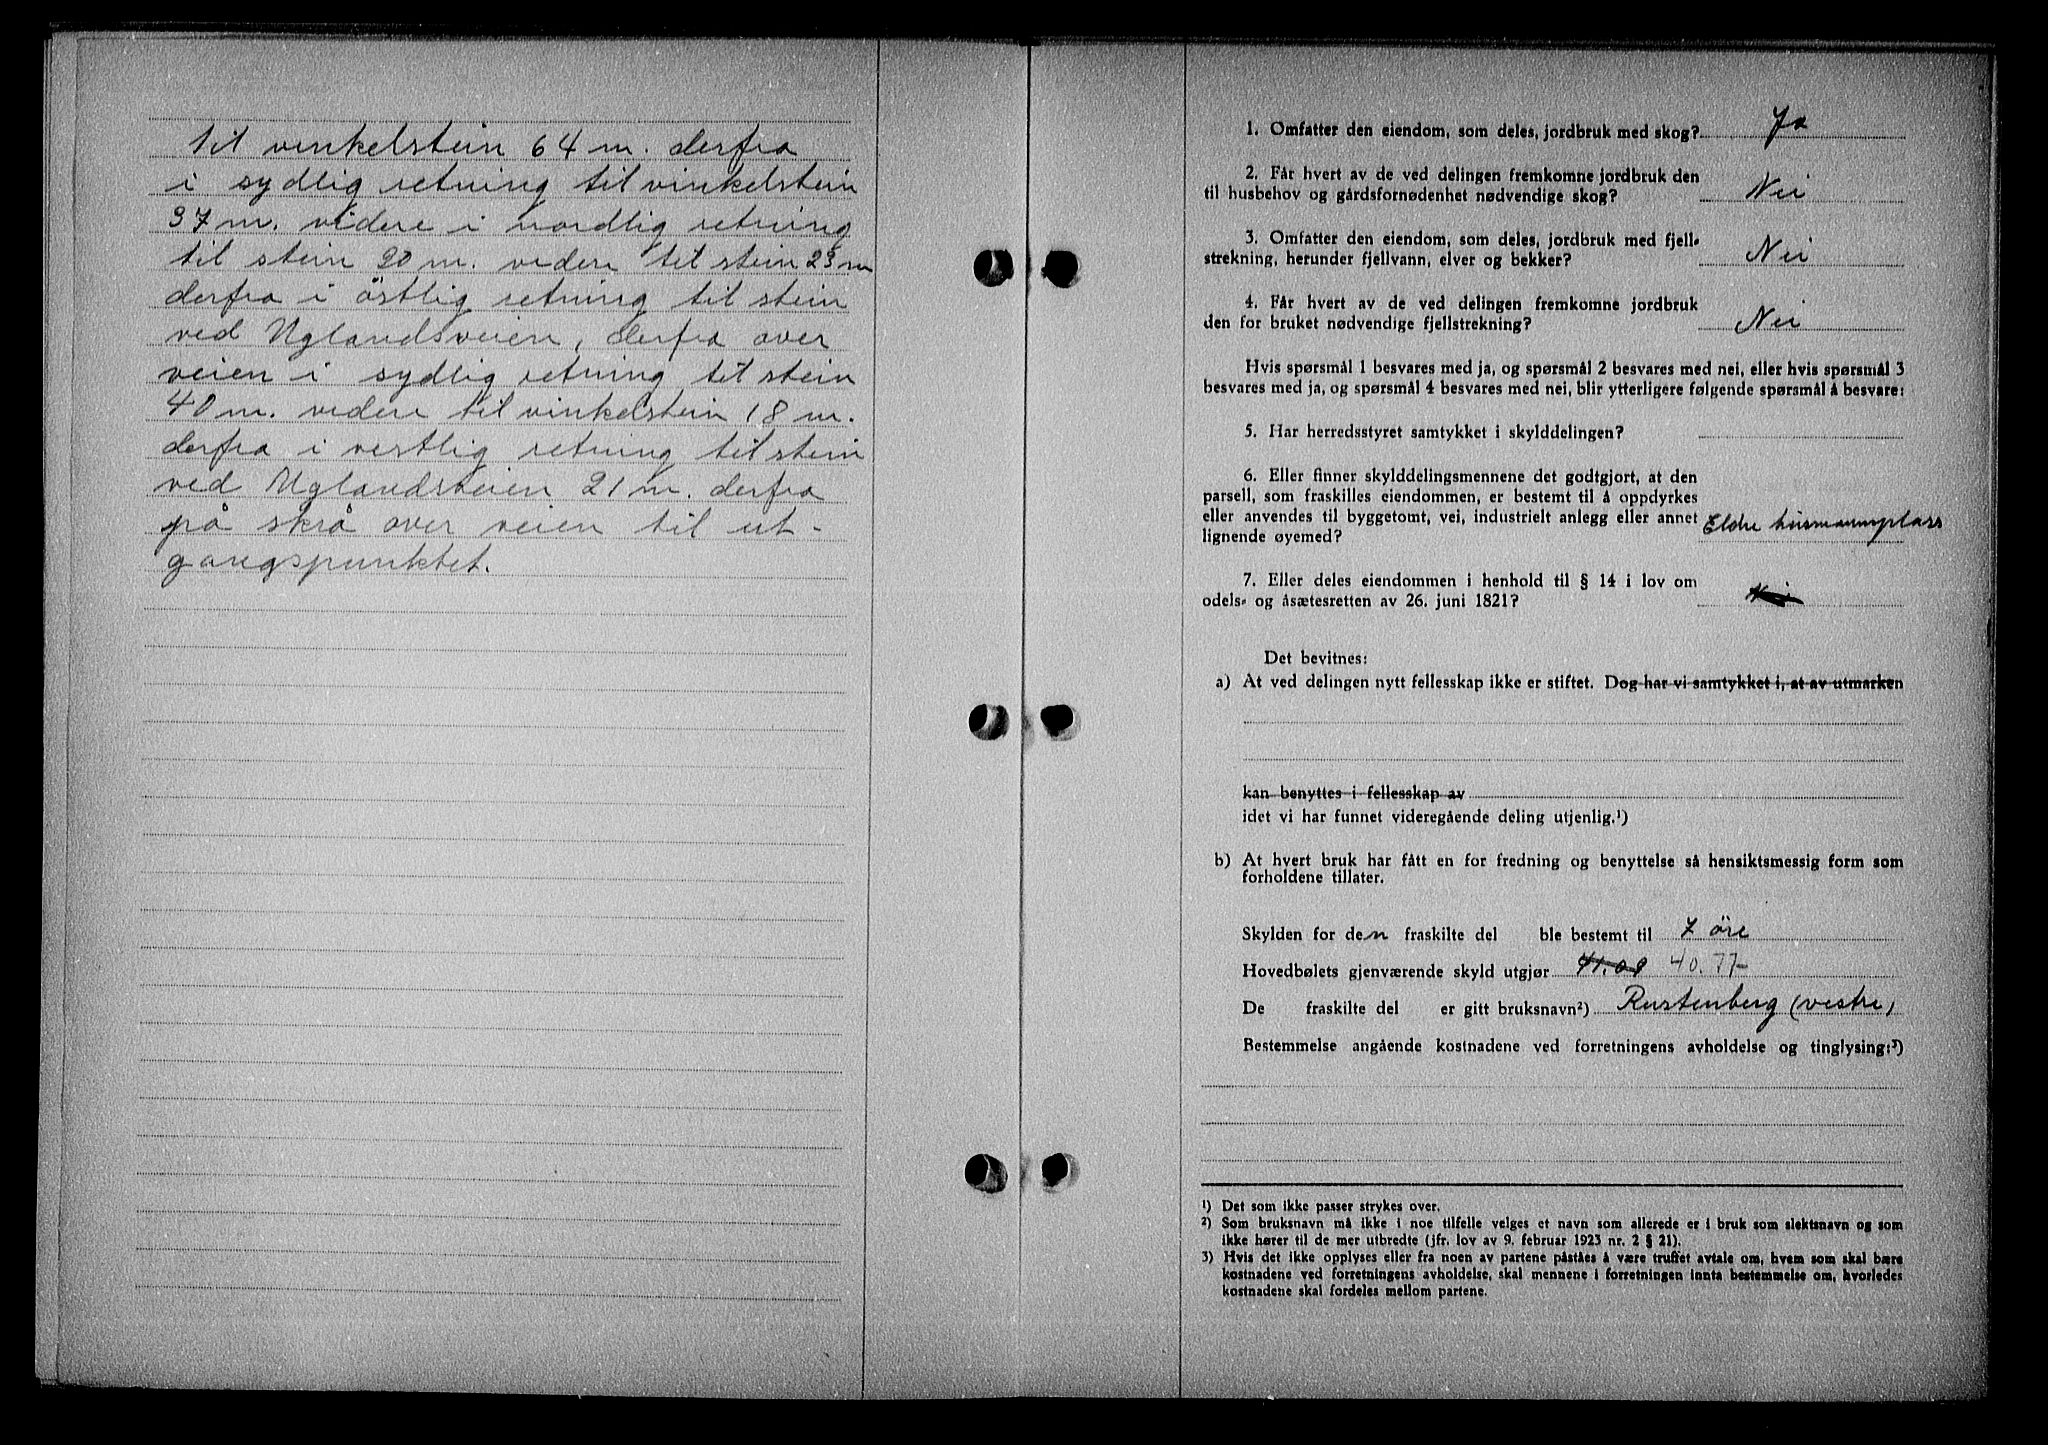 til vinkelstein 64 m. derfra
i sydlig retning til vinkelstein
37 m. videre i nordlig retning
til stein 20 m. videre til stein 23 m
derfra i östlig retning til stein
ved Uglandsveien, derfra over
veien i sydlig retning til stein
40 m. videre til vinkelstein 18 m.
derfra i vestlig retning til stein
ved Uglandsveien 21 m. derfra
på skrå over veien til ut-
gangspunktet.
1. Omfatter den eiendom, som deles, jordbruk med skog? Ja
2. Får hvert av de ved delingen fremkomne jordbruk den
til husbehov og gårdsfornødenhet nødvendige skog? Nei
3. Omfatter den eiendom, som deles, jordbruk med fjell-
strekning, herunder fjellvann, elver og bekker? Nei
4. Får hvert av de ved delingen fremkomne jordbruk
den for bruket nødvendige fjellstrekning? Nei
Hvis spørsmål 1 besvares med ja, og spørsmål 2 besvares med nei, eller hvis spørsmål 3
besvares med ja, og spørsmål 4 besvares med nei, blir ytterligere følgende spørsmål å besvare:
5. Har herredsstyret samtykket i skylddelingen?
6. Eller finner skylddelingsmennene det godtgjort, at den
parsell, som fraskilles eiendommen, er bestemt til å oppdyrkes
eller anvendes til byggetomt, vei, industrielt anlegg eller annet
lignende øyemed? Eldre husmannsplass
7. Eller deles eiendommen i henhold til § 14 i lov om
odels- og åsætesretten av 26. juni 1821? Nei
Det bevitnes:
a) At ved delingen nytt fellesskap ikke er stiftet. Dog har vi samtykket i, at av utmarken
kan benyttes i fellesskap av
idet vi har funnet videregående deling utjenlig.¹)
b) At hvert bruk har fått en for fredning og benyttelse så hensiktsmessig form som
forholdene tillater.
Skylden for den fraskilte del ble bestemt til 7 öre
Hovedbølets gjenværende skyld utgjør 41.09 40.77
De fraskilte del er gitt bruksnavn²) Rustenberg (vestre)
Bestemmelse angående kostnadene ved forretningens avholdelse og tinglysing:³)
¹) Det som ikke passer strykes over.
²) Som bruksnavn må ikke i noe tilfelle velges et navn som allerede er i bruk som slektsnavn og som
ikke hører til de mer utbredte (jfr. lov av 9. februar 1923 nr. 2 § 21).
3) Hvis det ikke opplyses eller fra noen av partene påståes å være truffet avtale om, hvem som skal bære
kostnadene ved forretningens avholdelse, skal mennene i forretningen innta bestemmelse om, hvorledes
kostnadene skal fordeles mellom partene.